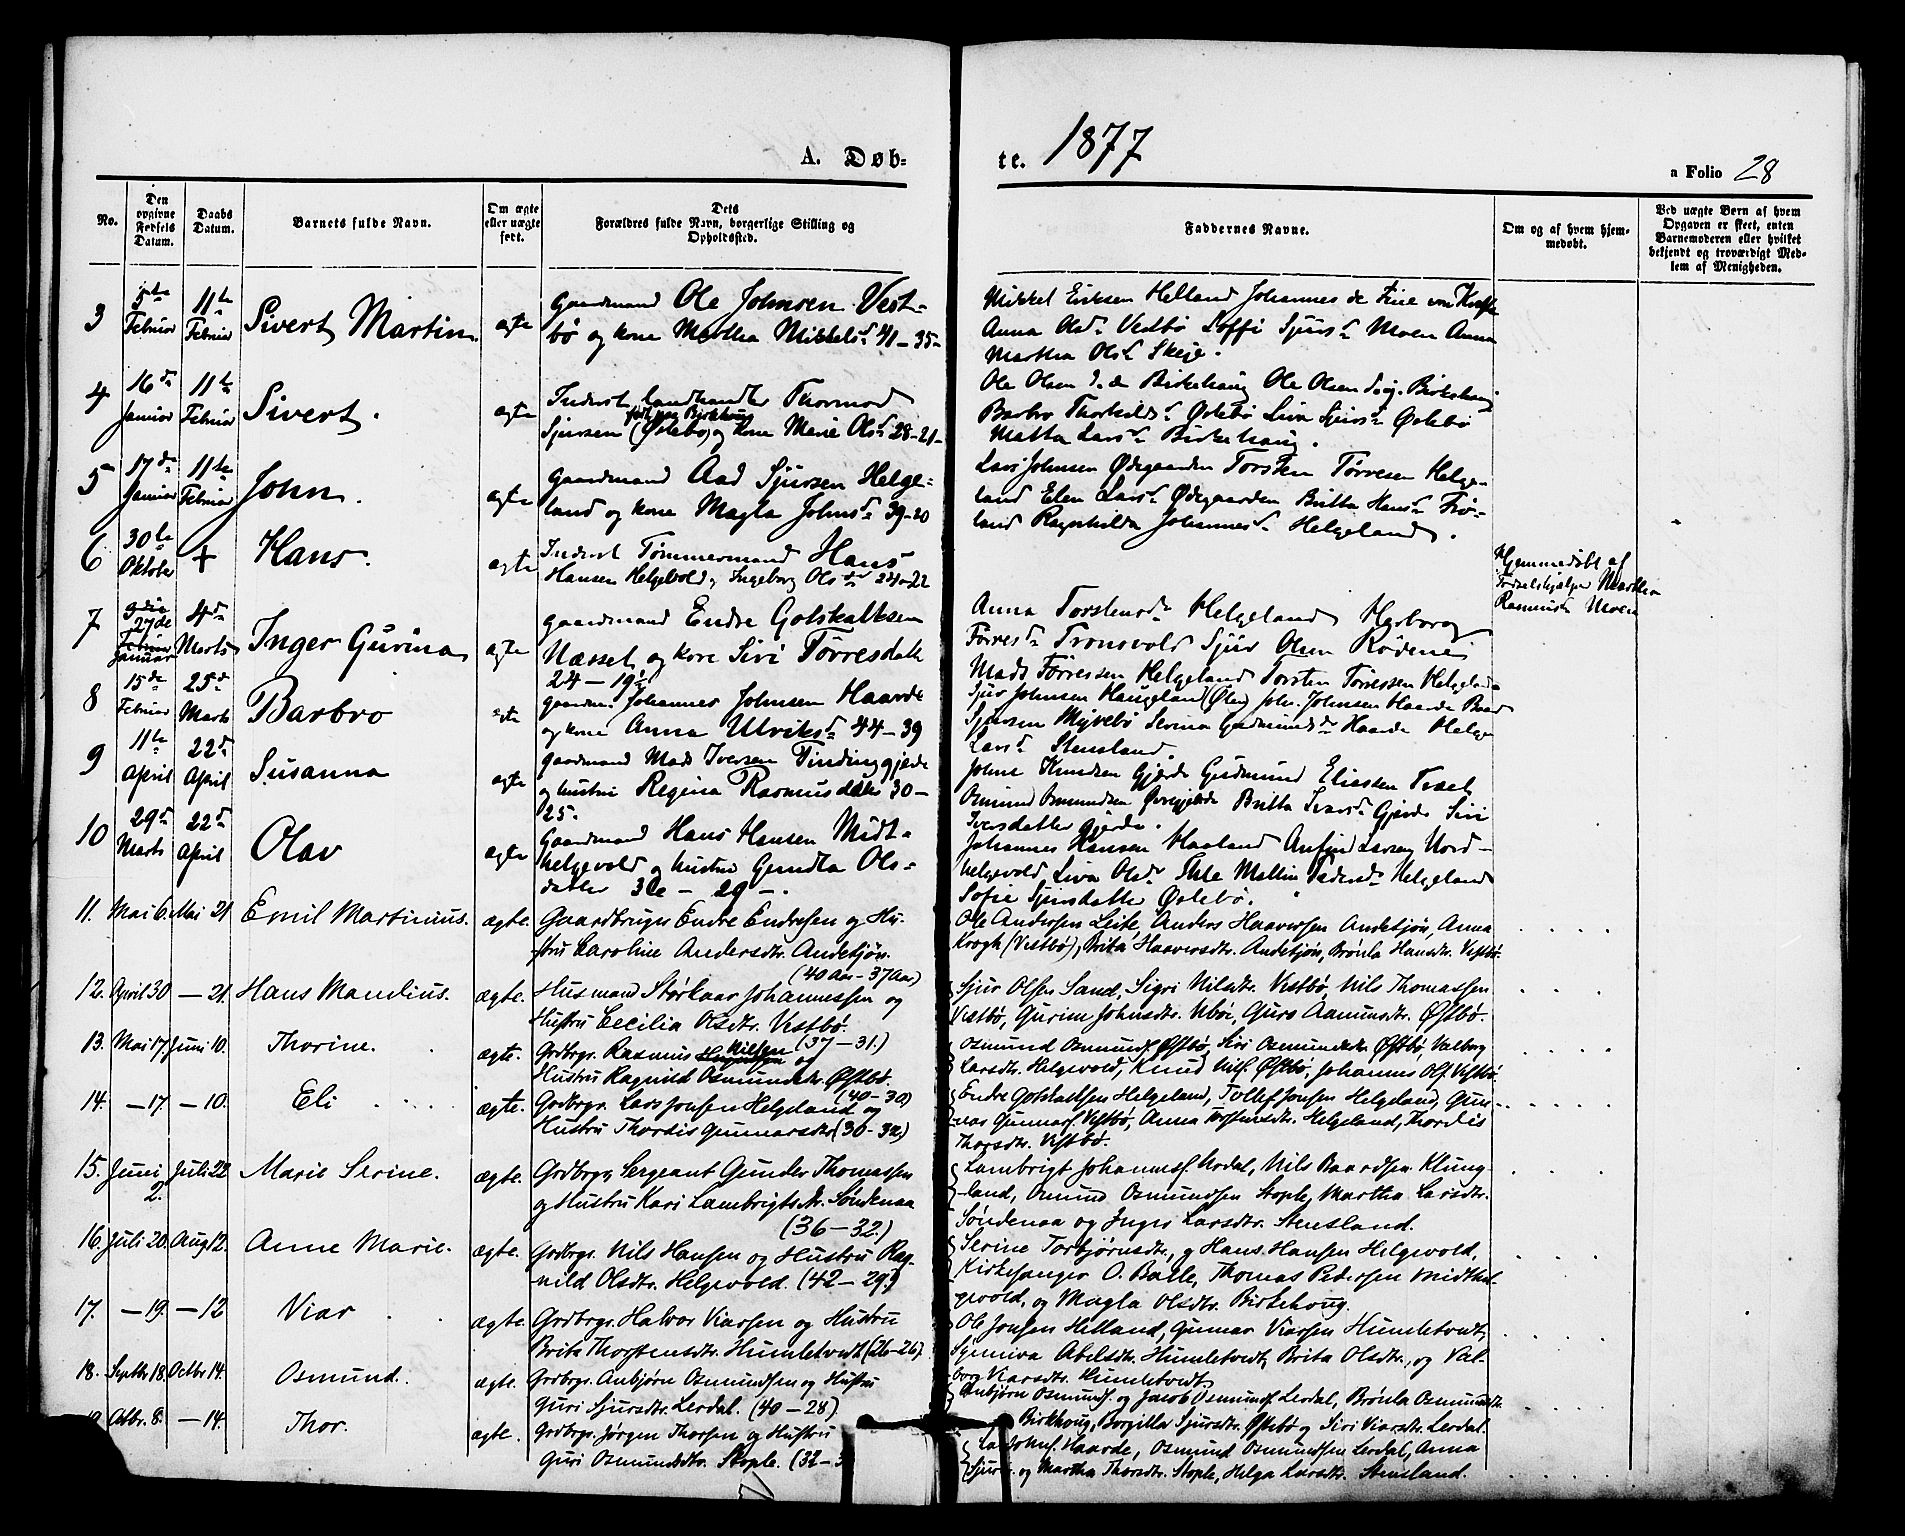 A. Døb-
te. 1877
a Folio 28
No.
Den opgivne Fødsels Datum.
Daabs Datum.
Barnets fulde Navn.
Om ægte eller uægte født.
Dets Forældres fulde Navn, borgerlige Stilling og Opholdssted.
Faddernes Navne.
Om og af hvem hjemmedøbt.
Ved uægte Børn af hvem Opgaven er skeet, enten Barnemoderen eller hvilket bekjendt og troværdigt Medlem af Menigheden.
3 5te Februar 11te Februar Sivert Martin. ægte Gaardmand Ole Johnsen Vest-
bø og kone Martha Mikkelsd 41-35
Mikkel Eriksen Helland Johannes
Anna Olsd Vestbø Sjursd Moen Anna
Martha Olsd Skeje.
4 16de Januar 11te Februar Sivert. ægte Inderst, Landhandler Thormod
Sjursen (Østebø) og kone Marie Olsd 28-21
Ole Olsen Birkehaug Ole Olsen Birkehaug
Barbro Thorkildsd Østebø Liva Sjursd Østebø
Metta Larsd Birkehaug.
5 17de Januar 11te Februar John. ægte Gaardmand Aad Sjursen Helge-
land og kone Magla Johnsd 39-20
Lars Johnsen Ødegaarden Torsten Tørresen Helge-
land Elen Larsd Ødegaarden Britta Hansd Frø-
land Ragnhilda Johannesd Helgeland.
6 30te Oktober + Hans. ægte Inderst Tømmermand Hans
Hansen Helgevold og Ingeborg Olsd 24-22
Hjemmedøbt af
Fødselshjælper Martha
Rasmusd Moen
7 27de Januar 4de Marts Inger Gurina ægte Gaardmand Endre Gotskalksen
Næsset og kone Siri Tørresdatter
24-19
Anna Torstensd Helgeland Herborg
Tørresd Tronsvold Sjur Olsen Rødne
Mads Tørresen Helgeland Torsten Tørressen Helgeland
8 15de Februar 25de Marts Barbro ægte Gaardm. Johannes Johnsen Haarde
og kone Anna Ulriksd 44-39
Sjur Johnsen Haugeland (Ølen) Joh. Johnsen Haarde Baar
Sjursen Myrebø Serina Gudmundsd Haarde Helga
Larsd Stensland.
9 11te April 22de April Susanna ægte Gaardmand Mads Iversen Tindinggjerde
og hustru Regina Rasmusdatter 30-
25.
Johne Knudsen Gjerde Gudmund Eliassen Tvæt
Osmund Osmundsen Øvregjerde Britta Ivarsd Gjerde Siri
Iversdatter Gjerde.
10 29de Marts 22de April Olav ægte Gaardmand Hans Hansen Midt-
helgevold og hustru Gundla Ols-
datter 32-29.
Johannes Hansen Haaland Anfind Larsen Nord-
helgevold Liva Olsd Malline Pedersd Helgeland
Sofie Sjursdatter Østebø.
11. Mai 6. Mai 21 Emil Martinius. ægte. Gaardbruger Endre Endresen og Hu-
stru Caroline Andersdtr. Andetjøn.
(40 Aar - 37 Aar)
Ole Andersen Leite, Anders Haaversen Andetjøn, Anna
Krogh (Vestbø), Brita Haaversdtr. Andetjøn, Brønla Hansdtr. Vestbø.
12. April 30 - 21. Hans Mandius. ægte. Husmand Størkaar Johannessen og
Hustru Cecilia Olsdtr. Vestbø.
(37-31.)
Sjur Olsen Sand, Sigri Nilsdtr. Vestbø, Nils Thomassen
Vestbø, Gurine Johnsdtr. Ubøe, Guro Aamundsdtr. Østbø.
13. Mai 17, Juni 10. Thorine. ægte. Grdbrgr. Rasmus Nilsen og
Hustru Ragnild Osmundsdtr. Østbø.
(40-30)
Osmund Osmunds. Østbø, Siri Osmundsdtr. Østbø, Valborg
Larsdtr. Helgevold, Knud Nils. Østbø, Johannes Ols. Vestbø.
14. -17. -10. Eli ægte. Grdbrgr. Lars Jonsen Helgeland og
Hustru Thordis Gunnarsdtr. (30-32.)
Endre Gotskalksen Helgeland, Tollef Jonsen Helgeland, Gun-
nar Gunnars. Vestbø, Anna Torstensdtr. Helgeland, Thordis
Thorsdtr. Vestbø.
15. Juni 2. Juli 22 Marie Serine. ægte. Grdbrgr, Sergeant Gunder Thomassen
og Hustru Kari Lambrigtsdtr. Søndenaa
(36-32.)
Lambrigt Johanness. Nodal, Nils Baardsen Klung-
land, Osmund Osmundsen Stople, Martha Larsdtr.
Søndenaa og Inger Larsdtr. Stensland.
16. Juli 20. Aug 12. Anne Marie. ægte. Grdbrgr. Nils Hansen og Hustru Rag-
nild Olsdtr. Helgevold. (42-29.)
Serine Torbjørnsdtr. og Hans Hansen Helgevold,
Kirkesanger O. Balle, Thomas Pedersen Midthel-
gevold, og Magla Olsdtr. Birkehoug.
17. -19. -12 Viar ægte. Grdbrgr. Halvor Viarsen og Hustru
Brita Thorstensdtr. Humletvedt (26-26).
Ole Jonsen Helland, Gunnar Viarsen Humletvedt,
Synniva Abelsdtr. Humletvedt, Brita Olsdtr., og Val-
borg Viarsdtr. Humletvedt.
18. Septbr 18. Octbr 14. Osmund. ægte. Grdbrgr. Anbjørn Osmundsen og Hustru
Guri Sjursdtr. Lerdal. (40-28)
Anbjørn Osmunds. og Jacob Osmunds. Lerdal, Brønla Osmundsdtr.
Birkhoug, Borgilla Sjursdtr. Østebø og Siri Viarsdtr. Lerdal.
Octbr. 8. -14. Thor. ægte. Grdbrgr. Jørgen Thorsen og Hustru
Guri Osmundsdtr. Stople. (32-3
Lars Johns. Haarde, Osmund Osmundsen Lerdal, Anna
Sjurs. og Martha Thorsdtr. Stople, Helga Larsdtr. Stensland.